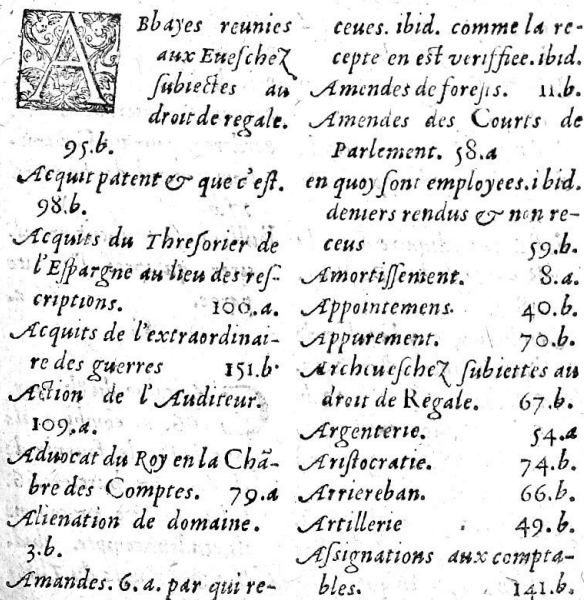 ABbayes reunies
aux Eueſchez
ſubiectes au
droit de regale.
95.b.
Acquit patent & que c'eſt.
98.b.
Acquits du Threſorier de
l'Eſpargne au lieu des reſ-
criptions. 100.a.
Acquits de l'extraordinai-
re des guerres 151.b.
Action de l'Auditeur.
109.a.
Aduocat du Roy en la Chã-
bre des Comptes. 79.a
Alienation de domaine.
3.b.
Amandes. 6.a. par qui re-
ceues. ibid. comme la re-
cepte en eſt veriffiee. ibid.
Amendes de foreſts. 11.b.
Amendes des Courts de
Parlement. 58.a
en quoy ſont employees. ibid.
deniers rendus & non re-
ceus 59.b.
Amortiſſement. 8.a.
Appointemens. 40.b.
Appurement. 70.b.
Archeueſchez ſubiettes au
droit de Regale. 67.b.
Argenterie. 54.a
Ariſtocratie. 74.b.
Arriereban. 66.b.
Artillerie 49.b.
Aſſignations aux compta-
bles. 141.b.